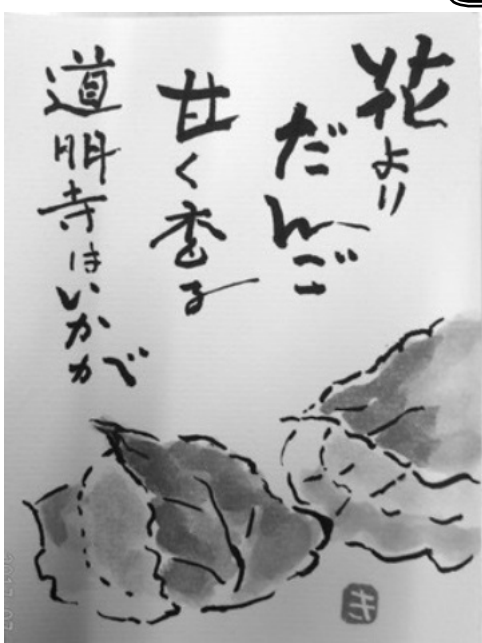 花より
だんご
甘く香る
道明寺はいかが
キ